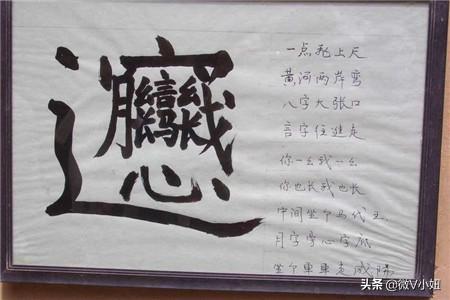 𰻞
一点飞上天
黄河两岸弯
八字大张口
言字往进走
你一幺我一幺
你也长我也长
中间坐个马代王
月字旁心字底
坐个車車走咸阳
头条 @微V小妞